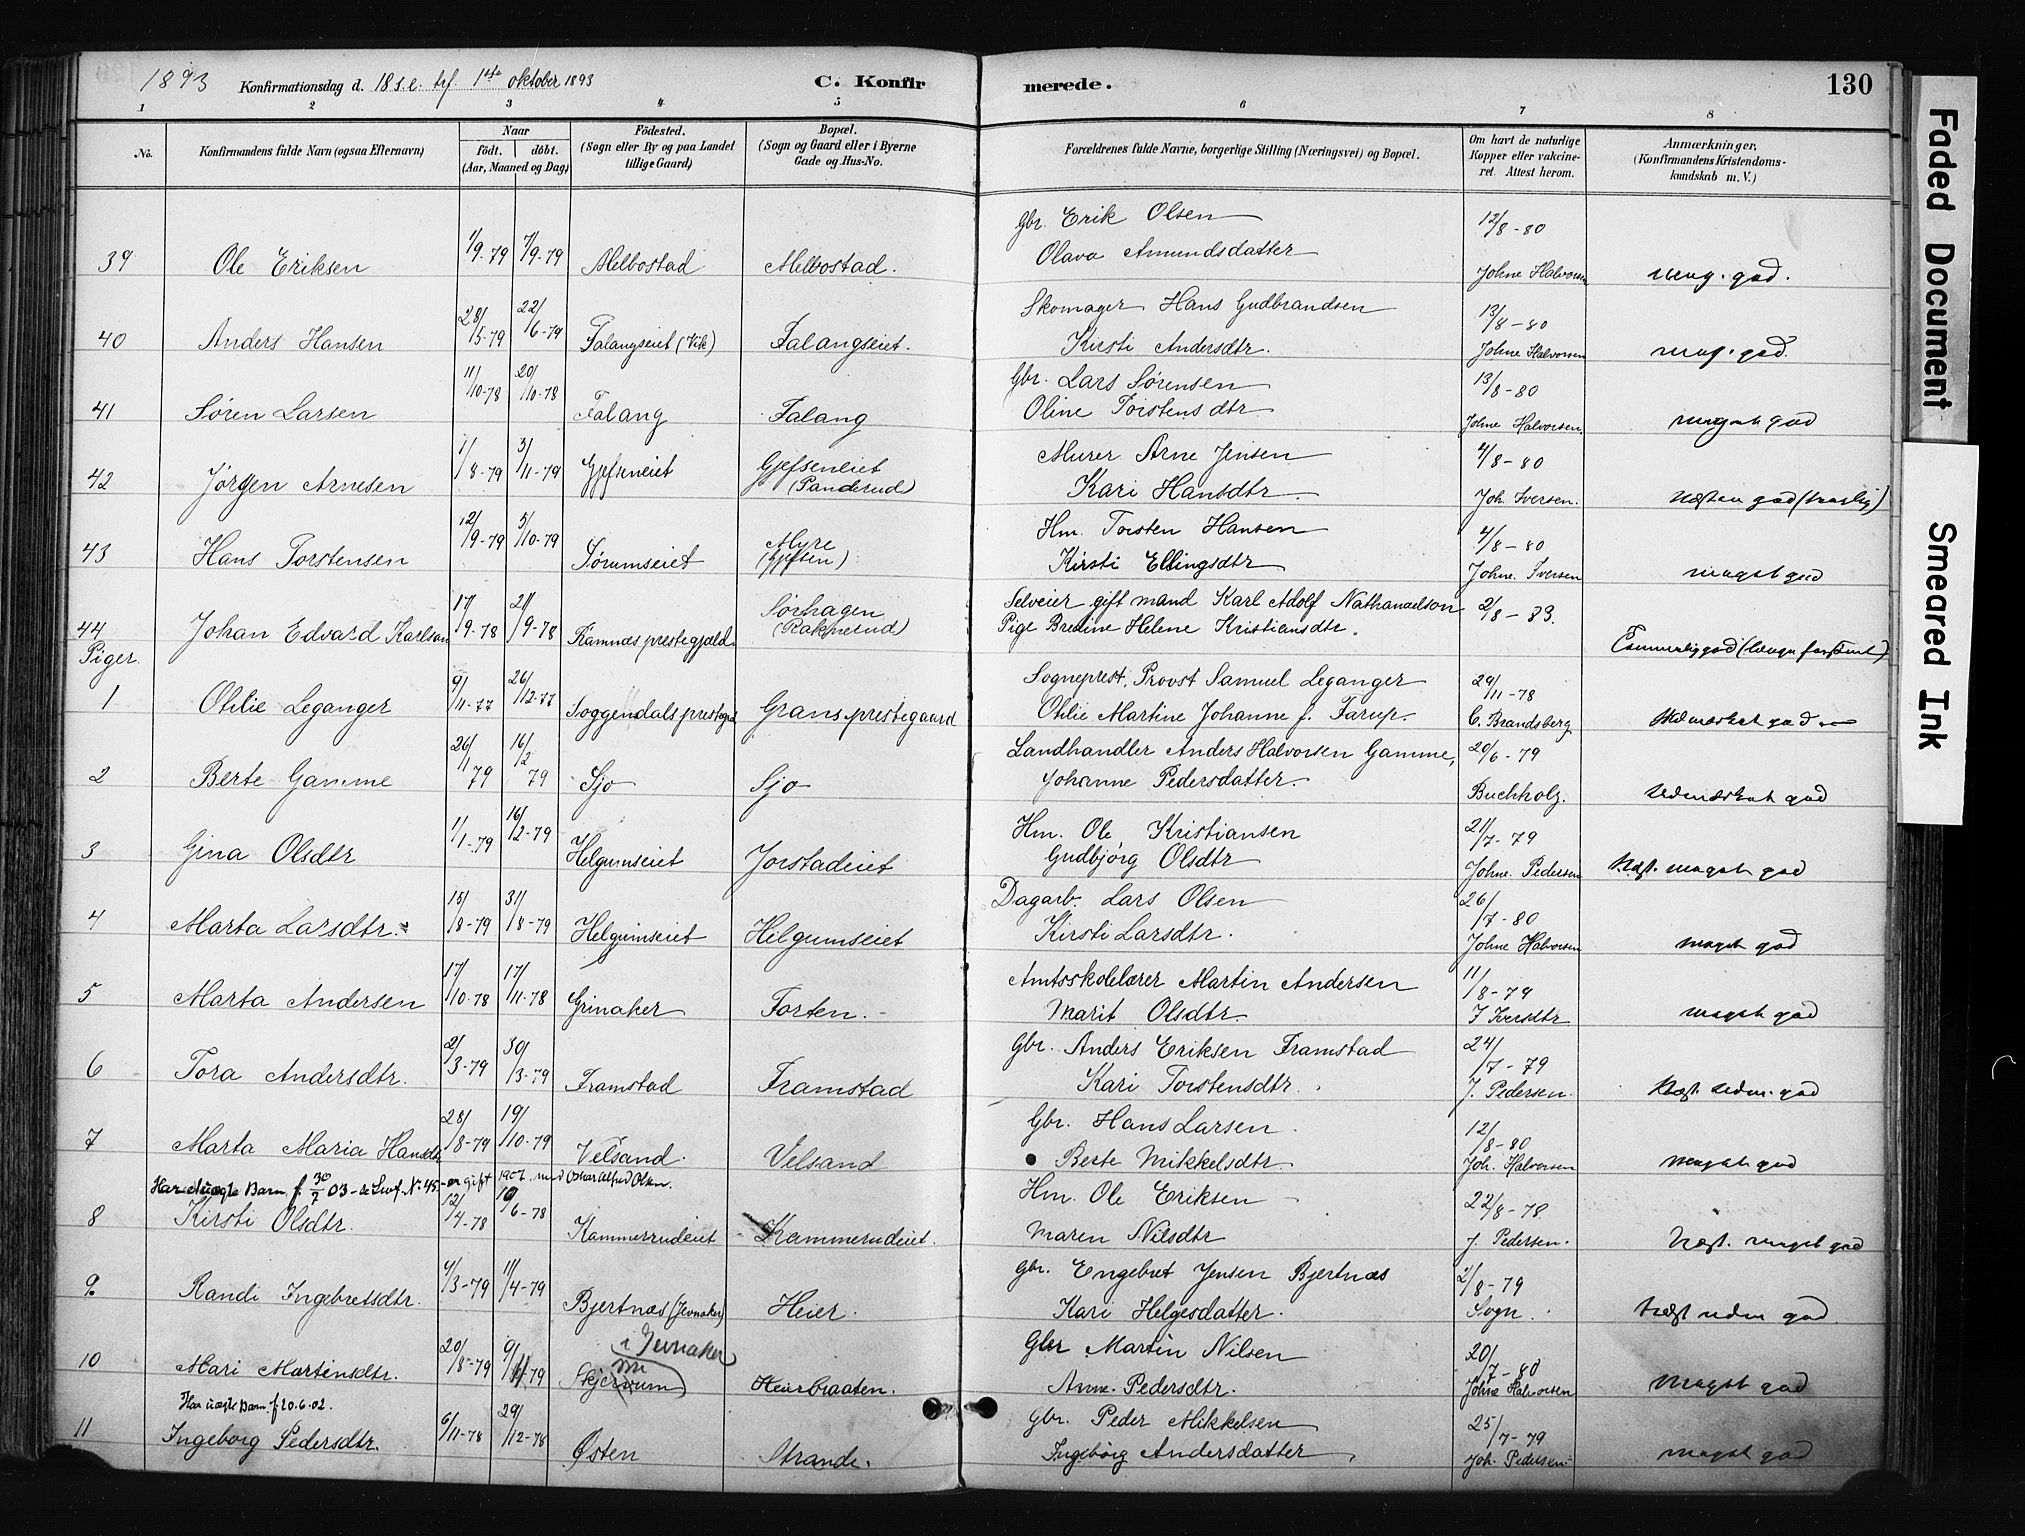 1893 Konfirmationsdag d. 18 s.e. trf 1ste oktober 1893 C. Konfirmerede. 130
1 2 3 4 5 6 7 8
No. Konfirmandens fulde Navn (ogsaa Efternavn) Naar födt. döbt. (Aar, Maaned og Dag) Födested. (Sogn eller By og paa Landet tillige Gaard) Bopæl. (Sogn og Gaard eller i Byerne Gade og Hus-No. Forældrenes fulde Navne, borgerlige Stilling (Næringsvei) og Bopæl. Om havt de naturlige Kopper eller vakcineret. Attest herom. Anmærkninger. (Konfirmandens Kristendomskundskab m. V.)
Gbr. Erik Olsen 12/8-80
39 Ole Eriksen 1/9-79 7/9-79 Melbostad Melbostad. Olava Amundsdatter Johne Halvorsen meg. god.
Skomager Hans Gudbrandsen 13/8-80
40 Anders Hansen 28/5-79 22/6-79 Falangseiet (Vik) Falangseiet. Kirsti Andersdtr. Johne Halvorsen meg. god.
Gbr. Lars Sørensen 13/8-80
41 Søren Larsen 11/10-78 20/10-78 Falang Falang Oline Torstensdtr Johne Halvorsen. meget god
Murer Arne Jensen 4/8-80
42 Jörgen Arnesen 1/8-79 3/11-79 Gjefseneiet Gjefseneiet (Panderud) Kari Hansdtr. Joh. Iversen. næsten god
Hm. Torsten Hansen 4/8-80
43 Hans Torstensen 12/9-79 5/10-79 Sørumseiet Myre (Gjefsen) Kirsti Ellingsdtr Johne. Iversen meget god
44 Johan Edvard Karlson 17/9-78 21/9-78 Ramnæs prestegjæld. Sørhagen (Raknerud) Selveier gift mand Karl Adolf Nathanaelson 2/8-83.
Pige Bredine Helene Kristiansdtr.
Piger.
Sogneprest, Provst Samuel Leganger 29/11-78
1 Othilie Leganger 9/11-77 26/12-77 Soggendals prestegd Grans prestegaard Othilie Martine Johanne f. Farup. C. Brandsberg Udmærket god
Landhandler Anders Halvorsen Gamme, 20/6-79
2 Berte Gamme 26/1 79 16/2 79 Sjo Sjo Johanne Pedersdatter. Buchholz. Udmærket god
Hm. Ole Kristiansen 21/7-79
3 Gina Olsdtr 1/1-79 16/2-79 Helgumseiet Jorstadeiet Gudbjørg Olsdtr Johne. Pedersen Næst. meget god
Dagarb. Lars Olsen 26/7-80
4 Marta Larsdtr. 15/8-79 31/8-79 Helgumseiet Helgumseiet Kirsti Larsdtr. Johne Halvorsen meget god
Amtsskolelærer Martin Andersen 11/8-79
5 Marta Andersen 17/10-78 17/11-78 Grinaker Forten. Marit Olsdtr. J Iversdtr meget god
Gbr. Anders Eriksen Framstad 24/7-79
6 Tora Andersdtr. 2/3-79 30/3-79 Framstad Framstad Kari Torstensdtr. J. Pedersen. Næst. udm. god
Gbr. Hans Larsen 12/8-80
7 Marta Maria Hansdtr 28/8-79 19/10-79 Velsand. Velsand Berte Mikkelsdtr. Joh. Halvorsen meget god
Har uægte Barn f. 30/7 03 - se Levf. No 45 - er gift 1907 med Oskar Alfred Olsen.
Hm. Ole Eriksen 22/8-78
8 Kirsti Olsdtr. 12/4-78 10/6-78 Kammerrudeiet Kammerudeiet. Maren Nilsdtr J. Pedersen. Næst. meget god
Gbr. Engebret Jensen Bjertnæs 2/8-79
9 Randi Ingebretsdtr. 4/3-79 11/4-79 Bjertnæs (Jevnaker) Heier. Kari Helgesdatter. Sogn. Næst udm god.
i Jevnaker
Gbr Martin Nilsen 20/7-80
10 Mari Martinsdtr. 20/8-79 Skjervum Heierbraaten. Anne. Pedersdtr. Johne Halvorsen meget god
Har uægte Barn f. 20.6.02.
Gbr. Peder Mikkelsen 25/7-79
11 Ingeborg Pedersdtr. 6/11-78 29/12-78 Østen Strande. Ingebörg Andersdatter Joh. Pedersen meget god
Faded Document
Smeared Ink